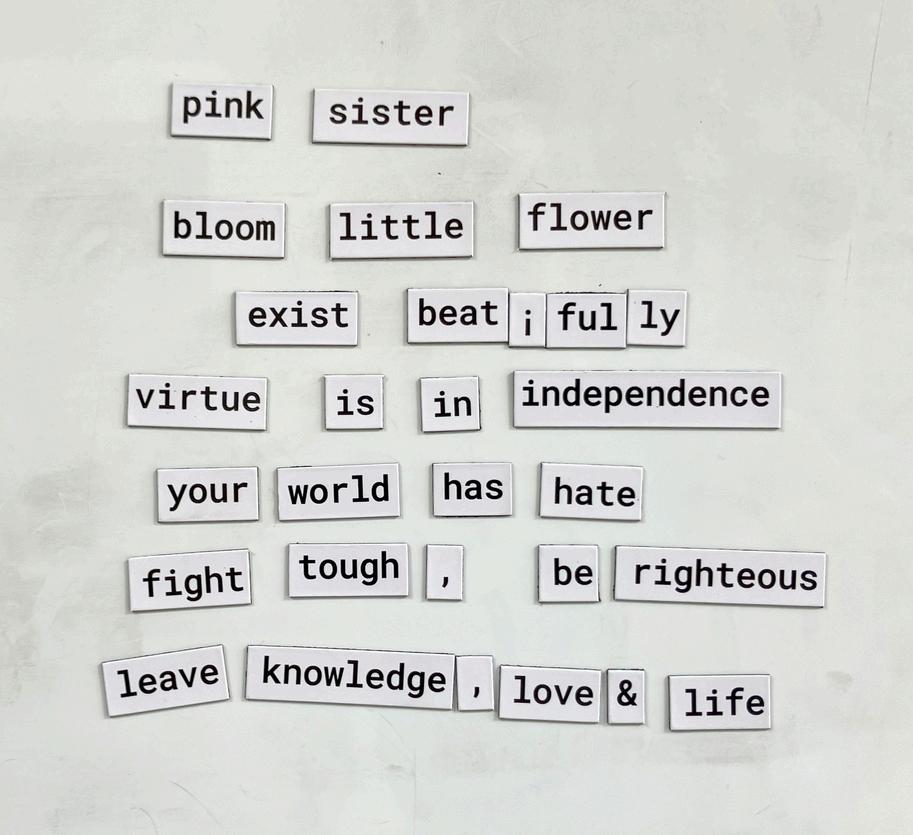 pink sister
bloom little flower
exist beat¡fully
virtue is in independence
your world has hate
fight tough, be righteous
leave knowledge, love & life